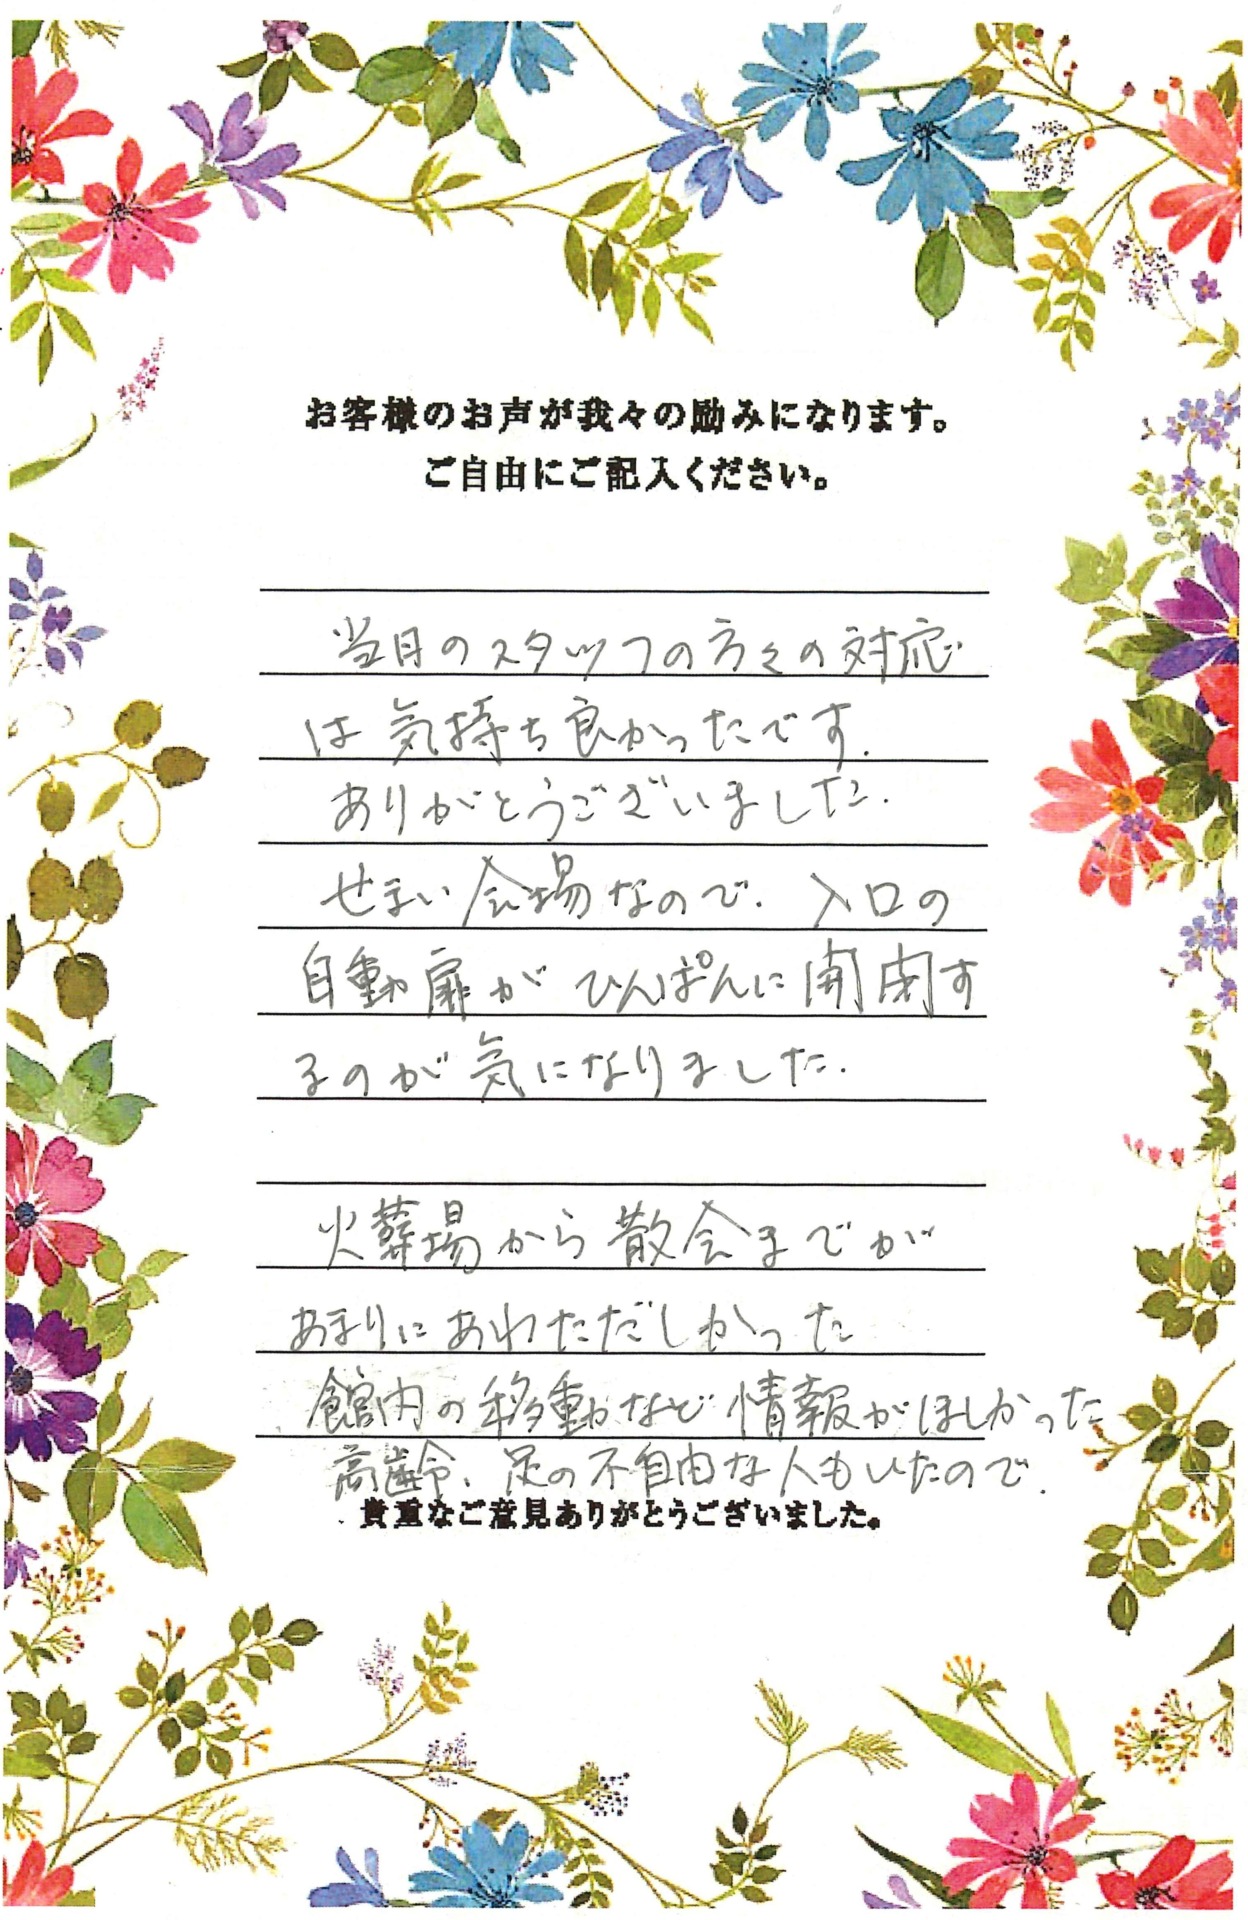 お客様のお声が我々の励みになります。
ご自由にご記入ください。
当日のスタッフの方々の対応
は気持ち良かったです.
ありがとうございました.
せまい会場なので、入口の
自動扉がひんぱんに開閉す
るのが気になりました.
火葬場から散会までが
あまりにあわただしかった
館内の移動など情報がほしかった
高齢、足の不自由な人もいたので.
貴重なご意見ありがとうございました。